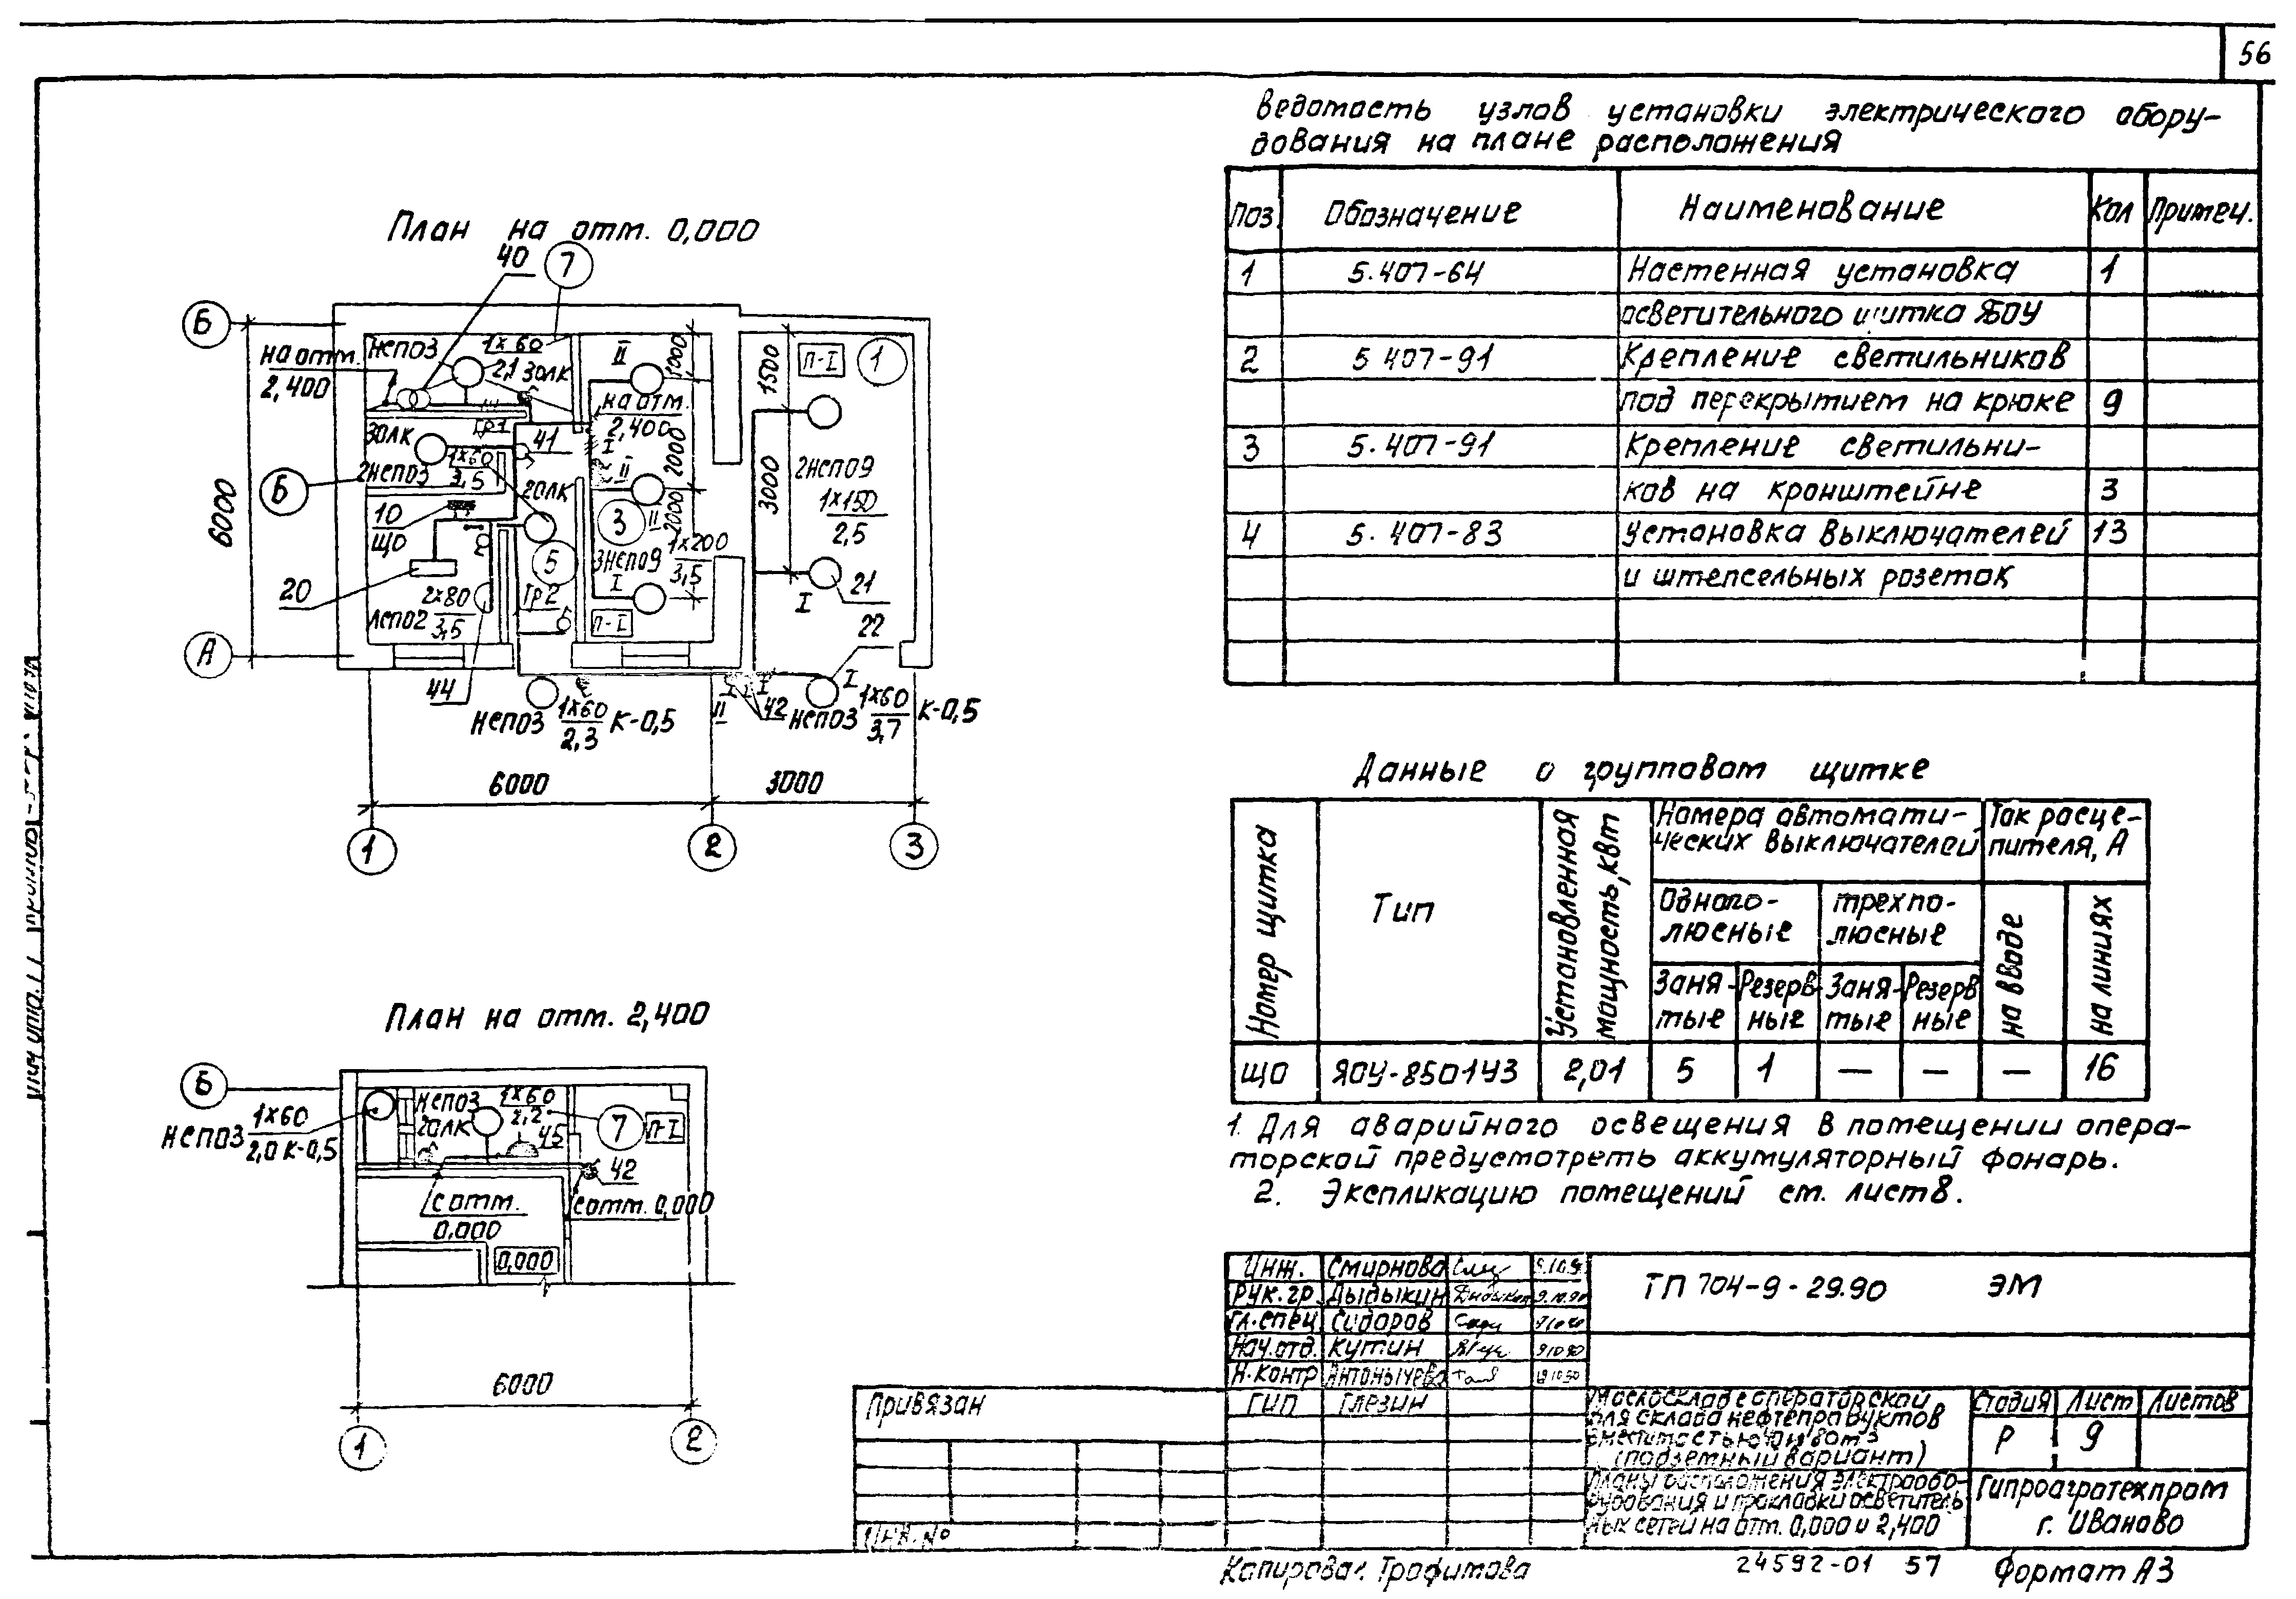 56
Ведомость узлов установки электрического обору-
дования на плане расположения
Поз. Обозначение Наименование Кол Примеч.
1 5.407-64 Настенная установка 1
осветительного щитка ЯОУ
2 5 407-91 Крепление светильников
под перекрытием на крюке 9
3 5.407-91 Крепление светильни-
ков на кронштейне 3
4 5.407-83 Установка выключателей 13
и штепсельных розеток
План на отм. 0,000
40
7
Б
на отм.
2,400
НСП03
1х60
2,1
30лк
II
1000
1500
П-I
1
Гр1
30лк
41
на отм.
2,400
I
2000
2НСП03
1х60
3,5
Б
20лк
II
3
II
2000
3000
2НСП09
1х150
2,5
6000
10
ЩО
5
3НСП09
1х200
3,5
I
20
2х80
3,5
ЛСП02
Гр2
П-I
I
21
22
А
44
НСП03 1х60
2,3
К-0,5
II
I
I
42
НСП03 1х60
3,7
К-0,5
I
6000
3000
1
2
3
Данные о групповом щитке
Номер щитка
Тип
Установленная
мощность, кВт
Номера автомати-
ческих выключателей
Ток расце-
пителя, А
Однопо-
люсные
трехпо-
люсные
на вводе
на линиях
Заня-
тые
Резерв
ные
Заня-
тые
Резерв
ные
ЩО ЯОУ-8501У3 2,01 5 1 — — — 16
1. Для аварийного освещения в помещении опера-
торской предусмотреть аккумуляторный фонарь.
2. Экспликацию помещений см. лист 8.
План на отм. 2,400
Б
НСП03 1х60
2,0 К-0,5
НСП03
20лк
1х60
2,2
45
7
П-I
42
с отм.
0,000
с отм. 0,000
0,000
6000
1
2
Инж. Смирнова
Рук.гр. Дыдыкин
Гл.спец. Сидоров
Нач.отд. Кутин
Н.контр Антонычева
ГИП Глезин
ТП 704-9-29.90 ЭМ
Привязан
Инв.№
Маслосклад с операторской
для склада нефтепродуктов
вместимостью 40 и 80 м3
(подземный вариант)
Стадия Лист Листов
Р 9
Планы расположения электрообо-
рудования и прокладки осветитель
ных сетей на отм. 0,000 и 2,400
Гипроагротехпром
г. Иваново
Копировал: Трофимова
24592-01 57
Формат А3